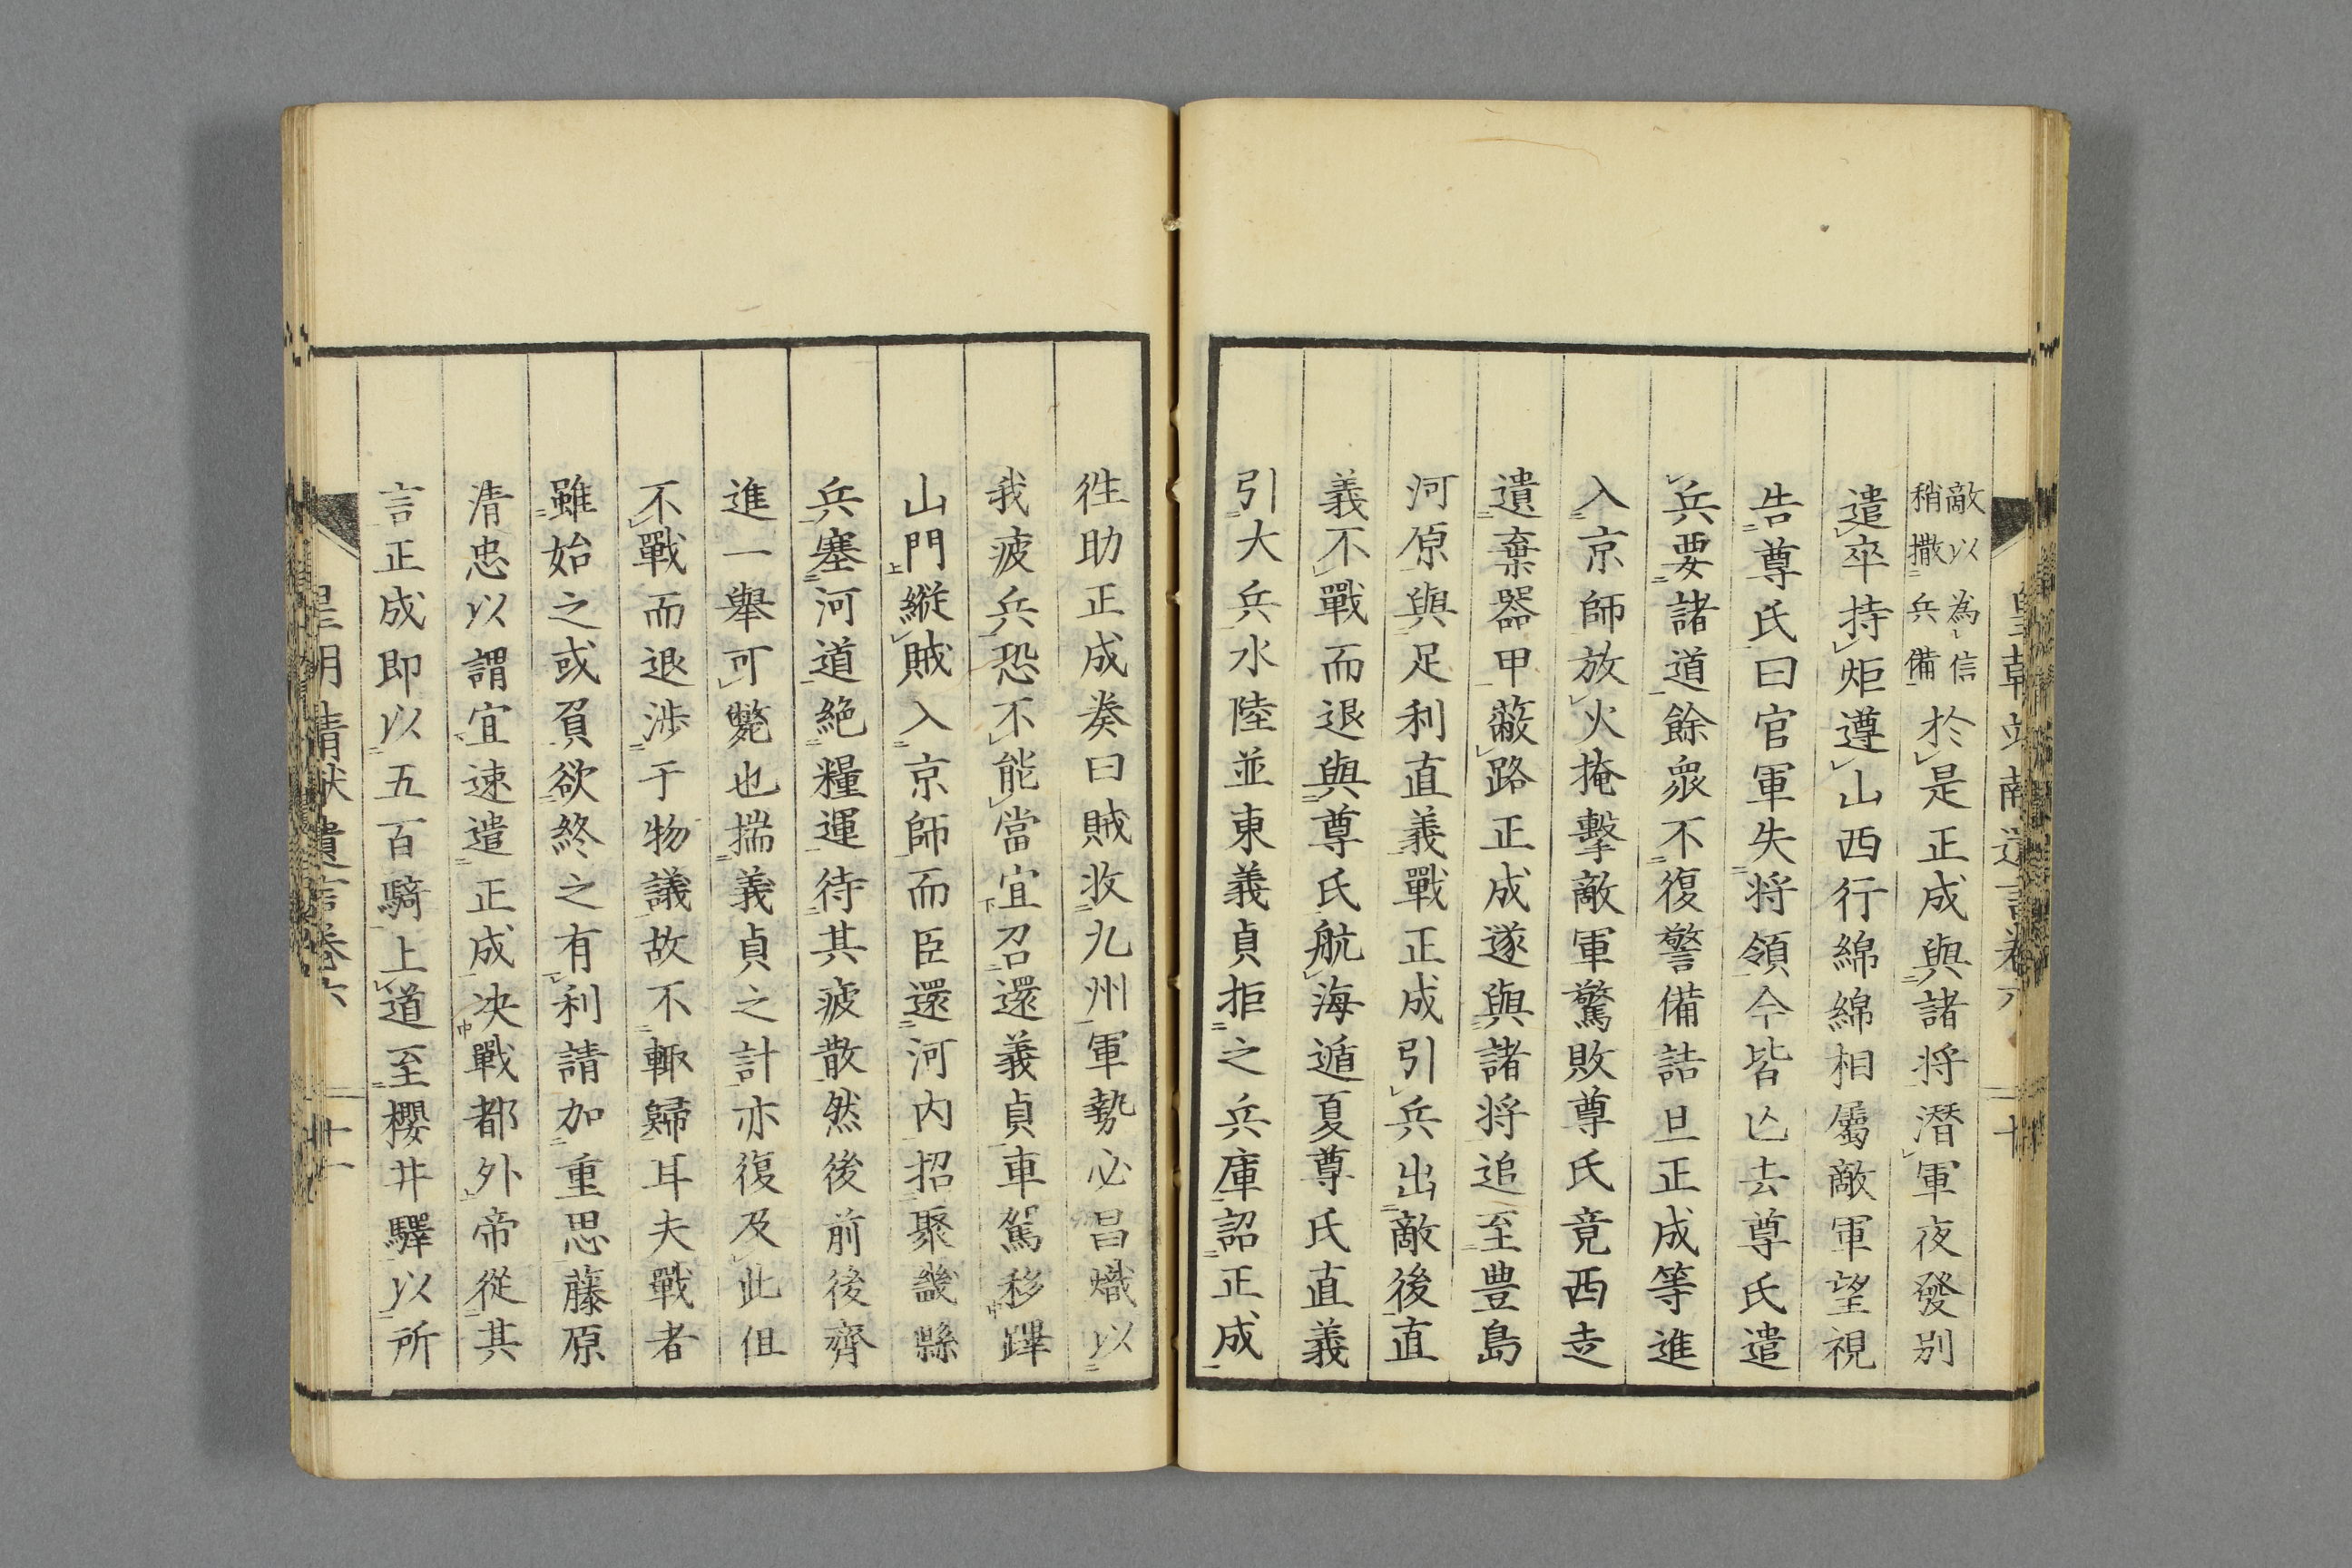 敵以為信
稍撒兵備
於是正成與諸将潛軍夜發別
遣卒持炬遵山西行綿綿相屬敵軍望視
告尊氏曰官軍失将領今皆亡去尊氏遣
兵要諸道餘眾不復警備詰旦正成等進
入京師放火掩擊敵軍驚敗尊氏竟西走
遺棄器甲蔽路正成遂與諸将追至豊島
河原與足利直義戰正成引兵出敵後直
義不戰而退與尊氏航海遁夏尊氏直義
引大兵水陸並東義貞拒之兵庫詔正成
徃助正成奏曰賊收九州軍勢必昌熾以
我疲兵恐不能當宜召還義貞車駕移蹕
山門縱賊入京師而臣還河内招聚畿縣
兵塞河道絶糧運待其疲散然後前後齊
進一舉可斃也揣義貞之計亦復及此但
不戰而退渉于物議故不輙歸耳夫戰者
雖始之或負欲終之有利請加重思藤原
清忠以謂宜速遣正成决戰都外帝從其
言正成即以五百騎上道至櫻井驛以所
遺言卷六
十一